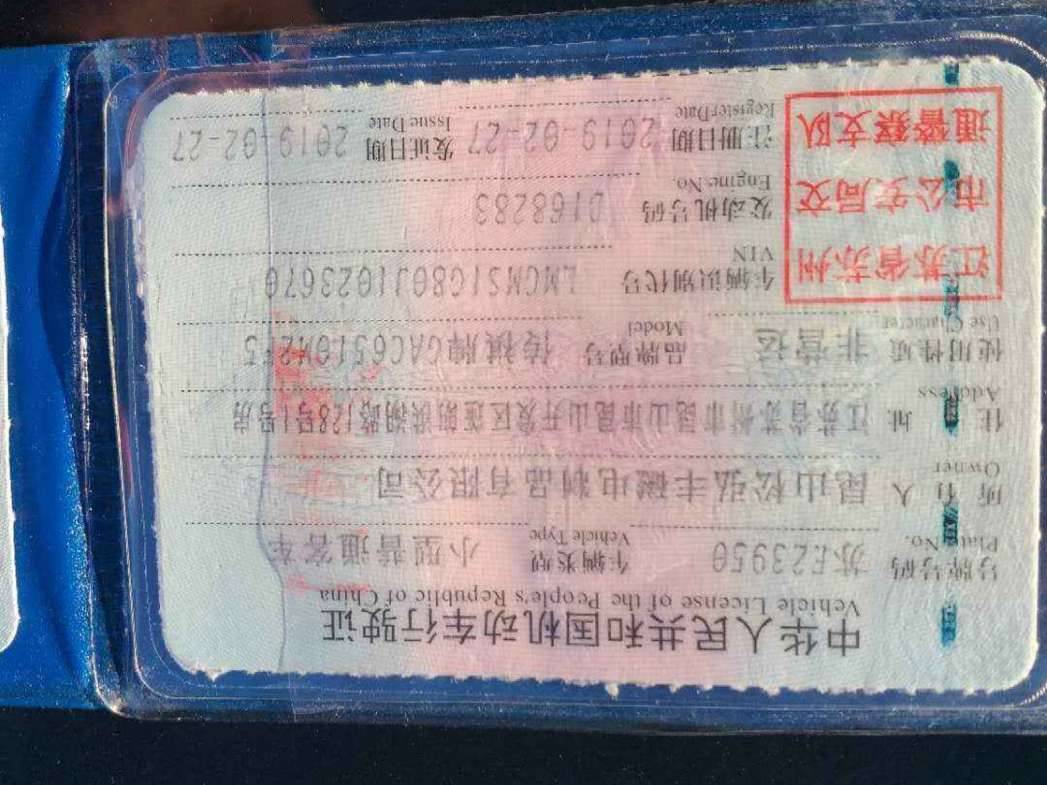 中华人民共和国机动车行驶证
Vehicle License of the People's Republic of China
号牌号码 苏E23950 车辆类型 小型普通客车
Plate No. Vehicle Type
所有人 昆山松弘丰磁电制品有限公司
Owner
住址 江苏省苏州市昆山市昆山开发区蓬朗洪湖路128号1号房
Address
使用性质 非营运 品牌型号 传祺牌GAC6510M2F5
Use Character Model
江苏省苏州
市公安局交
通警察支队
车辆识别代号 LMGMS1G80J1023670
VIN
发动机号码 D168283
Engine No.
注册日期 2019-02-27 发证日期 2019-02-27
Register Date Issue Date